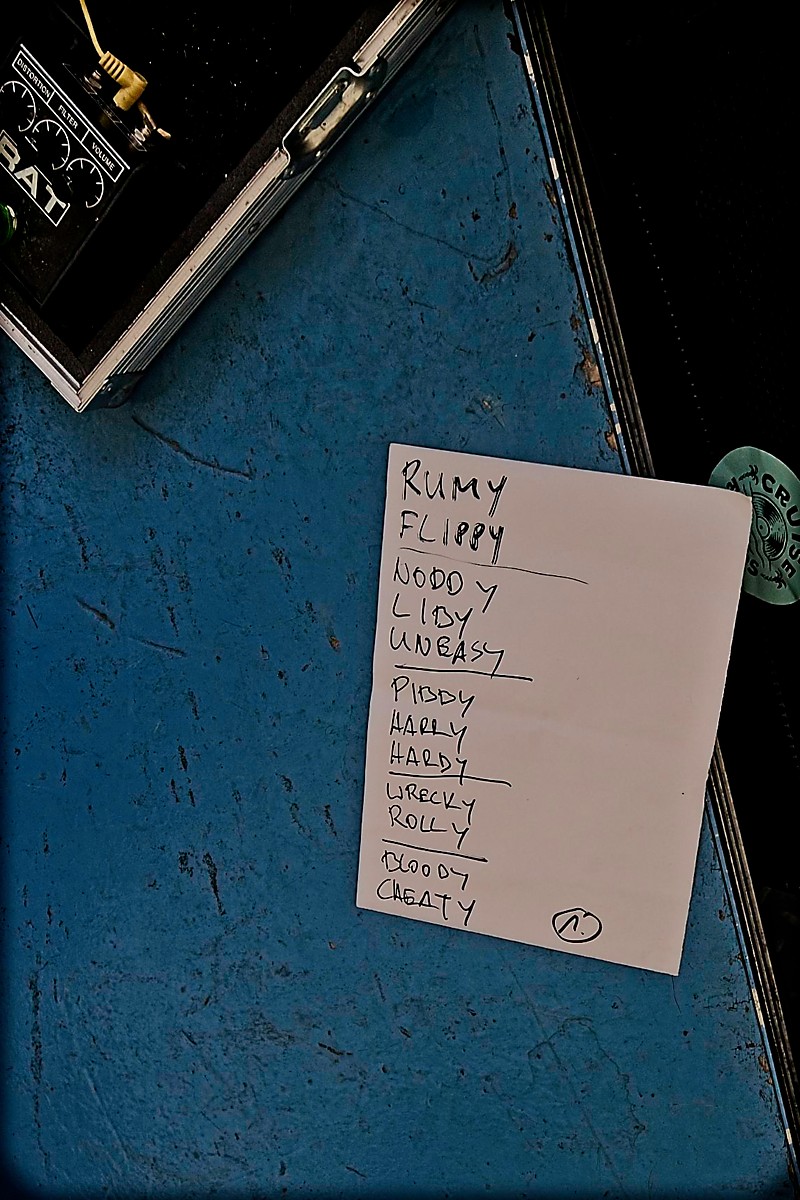 DISTORTION FILTER VOLUME
RAT
RUMY
FLIPPY
NODDY
LIBY
UNEASY
PIBDY
HARRY
HARDY
WRECKY
ROLLY
BLOODY
CHEATY
CRUISE